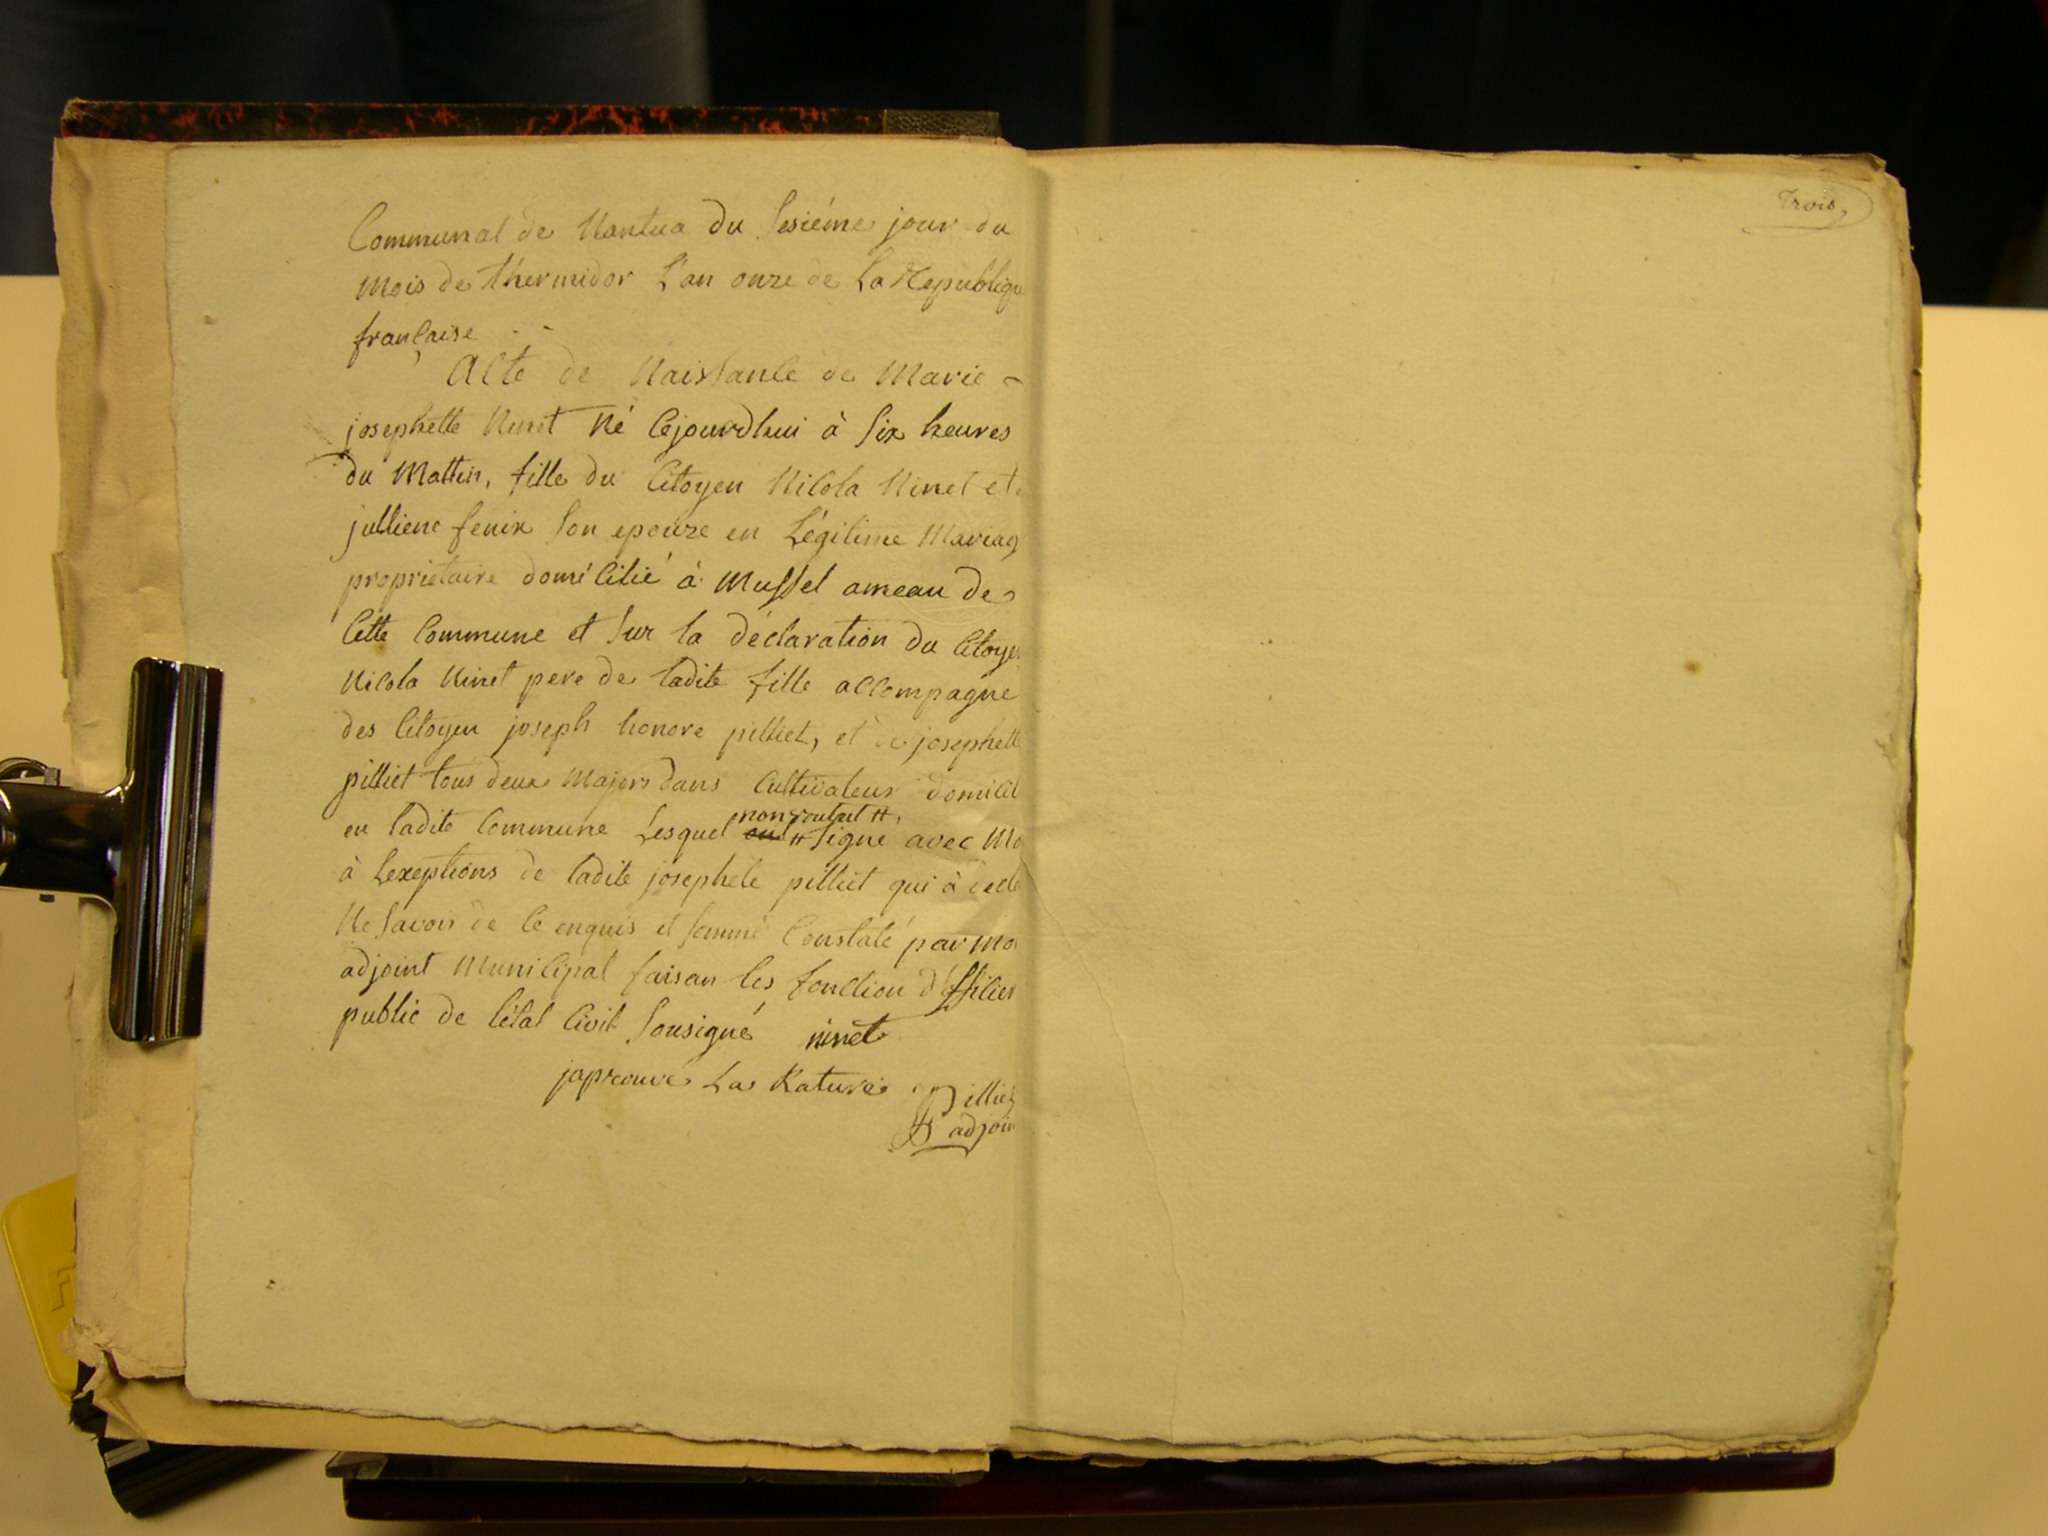 Communal de Nantua du Sesiéme jour du
mois de thermidor L'an onze de La Republique
française
Acte de Naissance de Marie -
josephette Ninet Né Cejourdhui à Six heures
du Mattin, fille du Citoyen Nicola Ninet et
julliene fenix Son epouze en Légitime Mariag
proprietaire domicilié à Mussel ameau de
Cette Commune et Sur la déclaration du Citoyen
Nicola Ninet pere de ladite fille accompagne
des Citoyen joseph honore pilliet, et de josephette
pilliet tous deux Majors dans Cultivateur domicil
non voulut #,
en ladite Commune Lesquel # Signe avec Mo
à Lexeptions de ladite josephete pilliet qui à decla
Ne Savoir de Ce enquis et Sommé Constaté par Moi
adjoint Municipal faisan les fonction d'officier
public de l'état Civil Sousigné ninet
japrouve La Rature Pilliet
adjoin
Trois